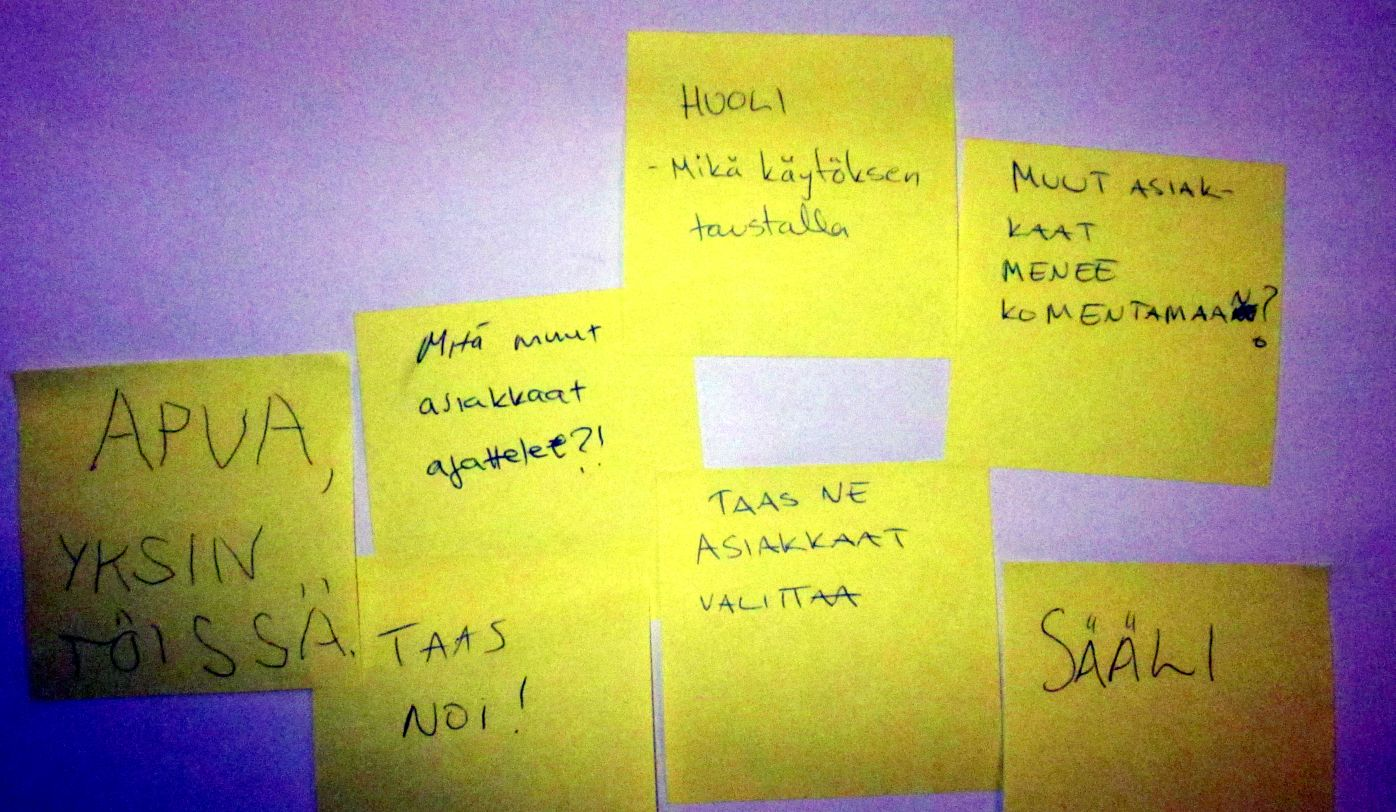 HUOLI
- Mikä käytöksen
taustalla
MUUT ASIAK-
KAAT
MENEE
KOMENTAMAAN?
Mitä muut
asiakkaat
ajattelet?!
APUA,
YKSIN
TÖISSÄ.
TAAS
NOI!
TAAS NE
ASIAKKAAT
VALITTAA
SÄÄLI